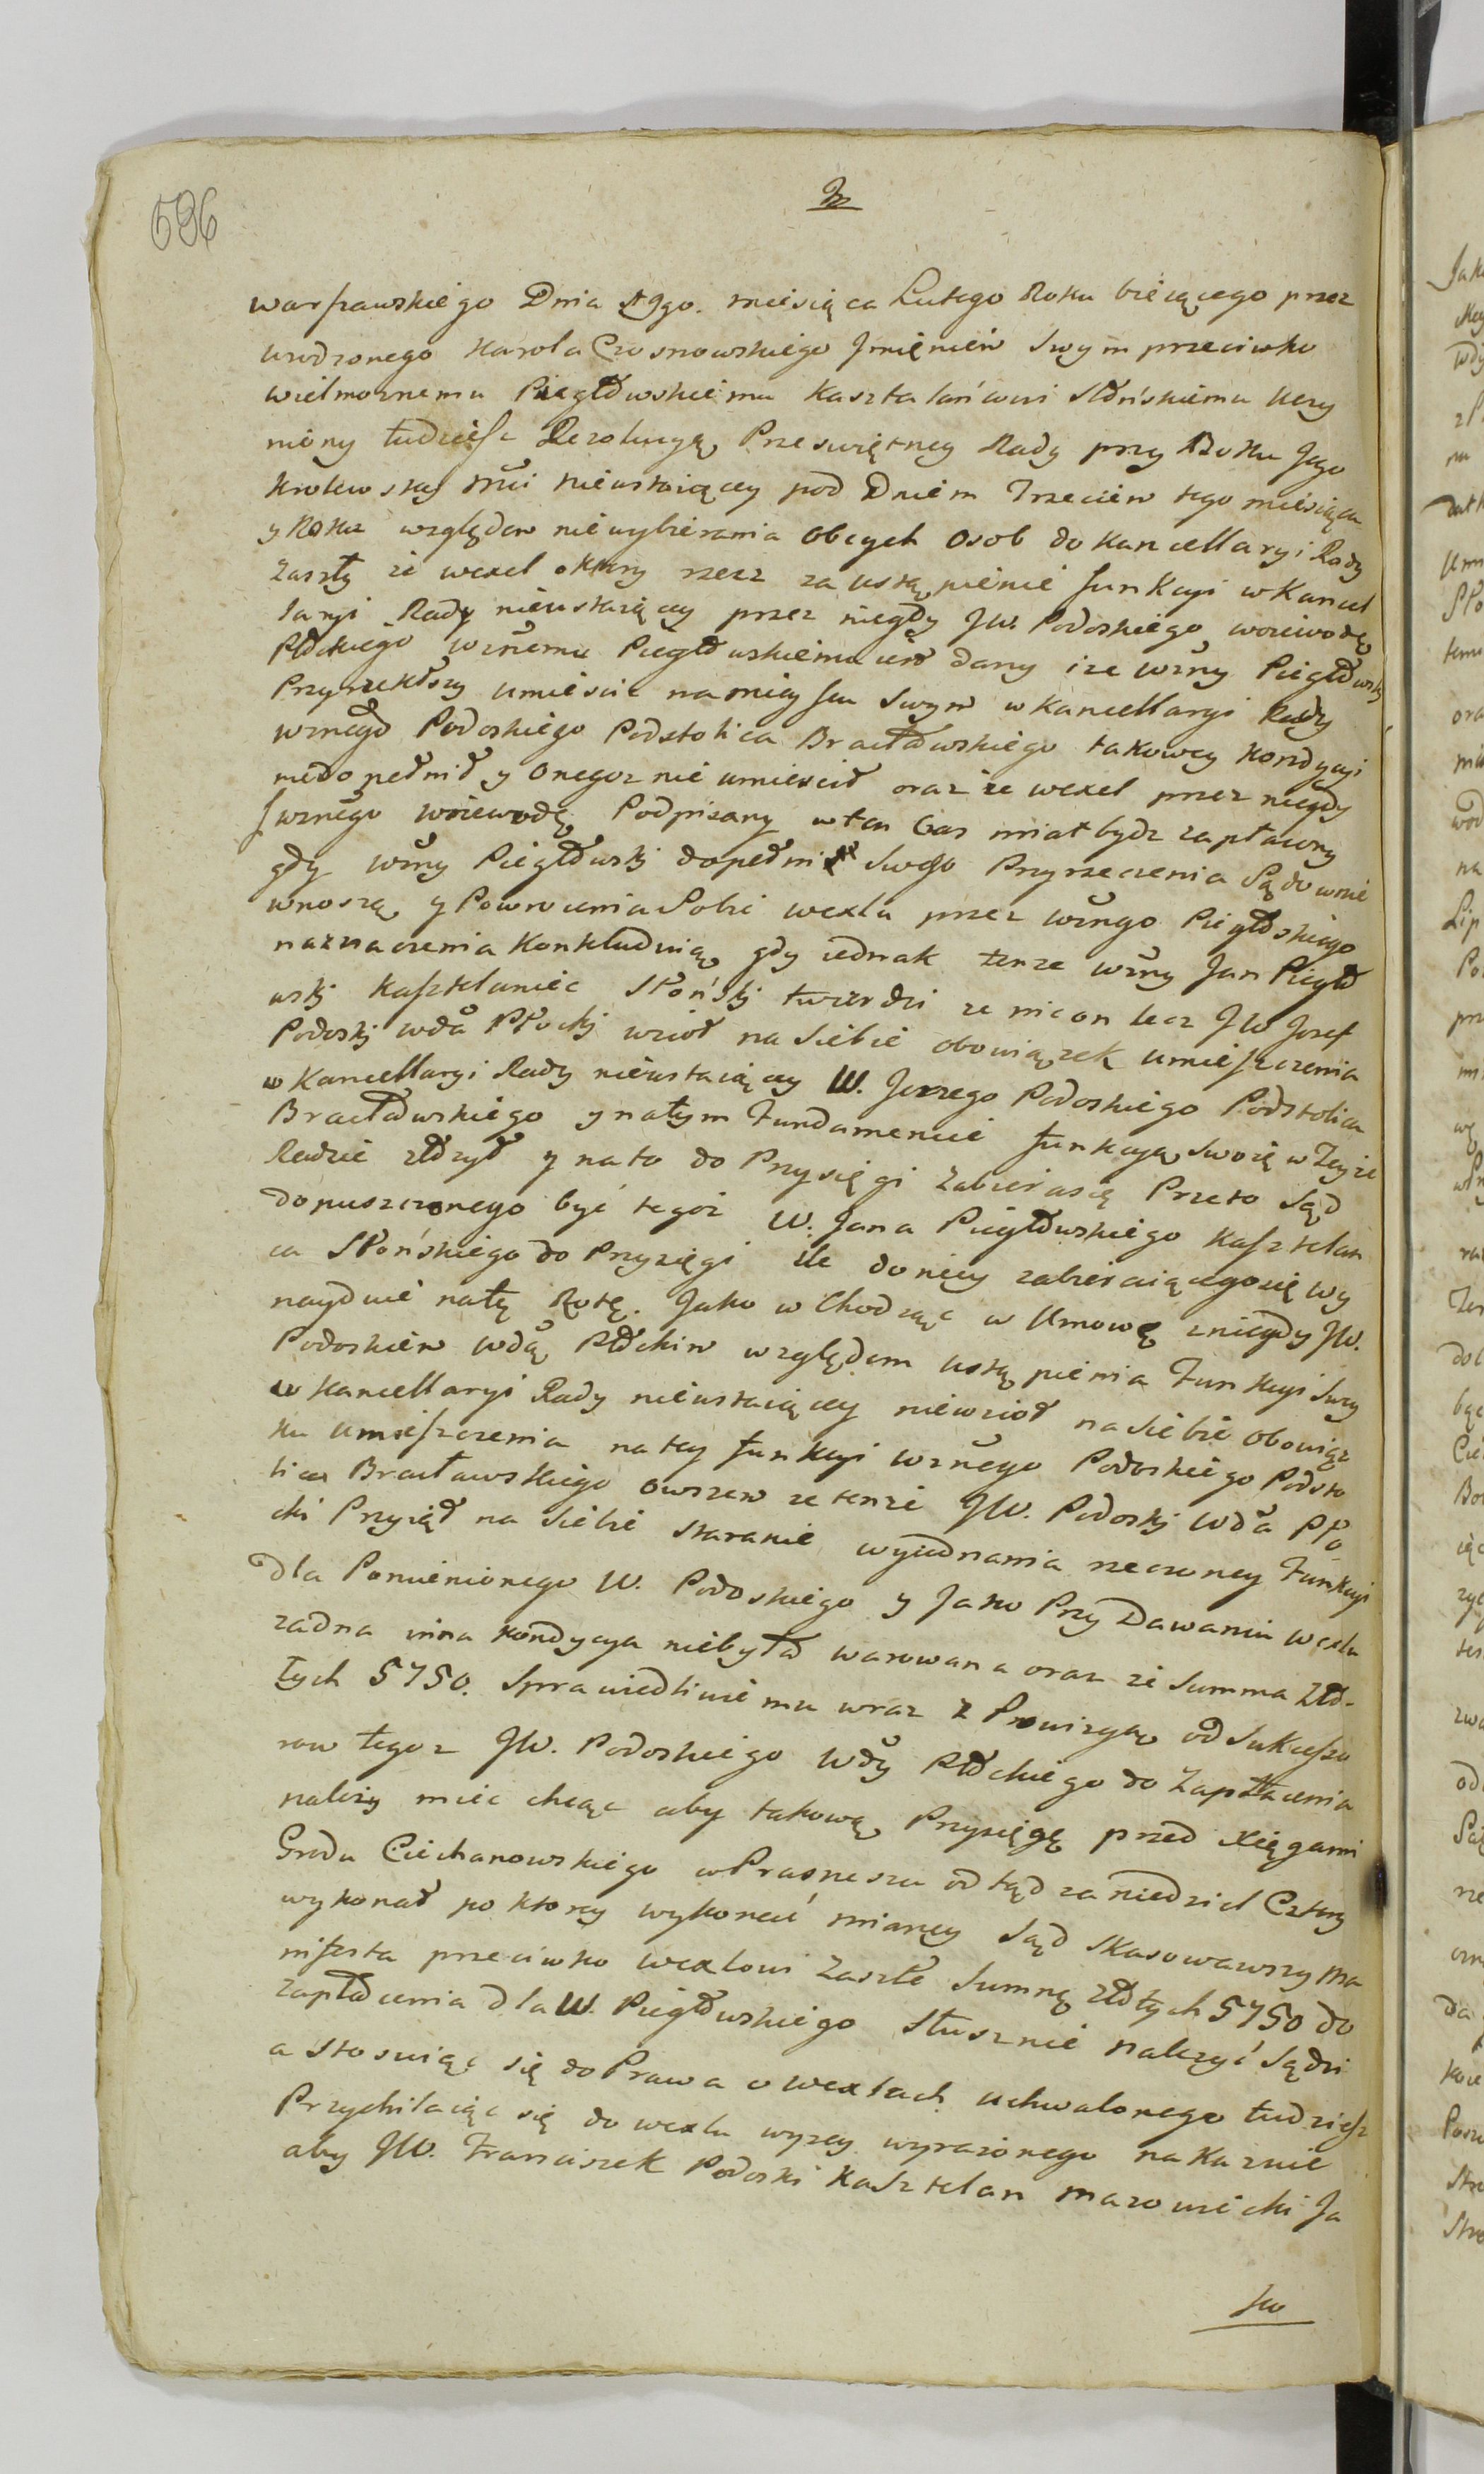 596
warszawskiego Dnia 19go. miesiąca Lutego Roku bieżącego przez
urodzonego Karola Czosnowskiego Jmięniem Swym przeciwko
wielmoznemu Piegłowskiemu Kasztalańcowi Słońskiemu Uczy
niony tudziesz Rezolucyą Przeświętney Rady przy Boku Jego
Krolewskiey Mci nieustaiącey pod Dniem Trzecim tego miesiąca
y Roku względem niewybierania obcych osob do Kancellaryi Rady
zaszły że wexel o ktory rzecz za ustąpienie funkcyi w Kancel
laryi Rady nieustaiącey przez niegdy JW. Podoskiego woiewodę
Płockiego wznemu Piegłowskiemu iest dany i że wzny Piegłowsky
Przyrzekłszy umieścic na mieyscu Swym w Kancellaryi Rady
wznego Podoskiego Podstolica Bracławskiego takowey kondycyi
niedopełnił y onegoz nie umiescił oraz że wexel przez niegdy
Jwznego woiewodę Podpisany w ten czas miał bydz zapłacony
gdy wzny Piegłowskj dopełni Swego Przyrzeczenia Sądownie
wnoszą y Powrocenia Sobie wexlu przez wzngo Piegłoskiego
naznaczenia konkluduią, gdy iednak tenze wzny Jan Piegło
wskj Kasztelaniec Słońskj twierdzi ze nie on lecz JW Jozef
Podoskj wda Płockj wzioł na Siebie obowiązek umieszczenia
w Kancellaryi Rady nieustaiącey W. Jerzego Podoskiego Podstolica
Bracławskiego y na tym Fundamencie funkcyą swoię w Teyze
Radzie złożył y na to do Przysięgi zabiera się Przeto Sąd
dopuszczonego być tegoż W. Jana Piegłowskiego Kasztelan
ca Słońskiego do Przysięgi ile do niey zabieraiącego się wy
nayduie na tę Rotę. Jako wchodząc w Umowę z niegdy JW.
Podoskim wdą Płockim względem ustąpienia Funkcyi Swey
w Kancellaryi Rady nieustaiącey niewzioł na Siebie obowiąz
ku umieszczenia na tey funkcyi wznego Podoskiego Podsto
lica Bracławskiego owszem ze tenże JW. Podoskj wda Pło
cki Przyiął na Siebie staranie wyiednania rzeczoney Funkcyi
dla Pomienionego W. Podoskiego y Jako Przy Dawaniu wexlu
zadna inna kondycya niebyła warowana oraz że Summa Zło-
tych 5750. Sprawiedliwie mu wraz z Prowizyą od Sukcesso
row tegoz JW. Podoskiego wdy Płockiego do Zapłacenia
należy miec chcąc aby takową Przysięgę przed Xięgami
Grodu Ciechanowskiego w Prasneszu odtąd za niedziel Cztery
wykonał po ktorey wykonać mianey Sąd skasowawszy Ma
nifesta przeciwko wexlowi zaszłe Summę złotych 5750 do
zapłacenia dla W. Piegłowskiego słusznie należyć Sądzi
a stosuiąc się do Prawa o wexlach uchwalonego tudziesz
Przychilaiąc się do wexlu wyzey wyrażonego nakazuie
aby JW. Franciszek Podoski Kasztelan mazowiecki Ja